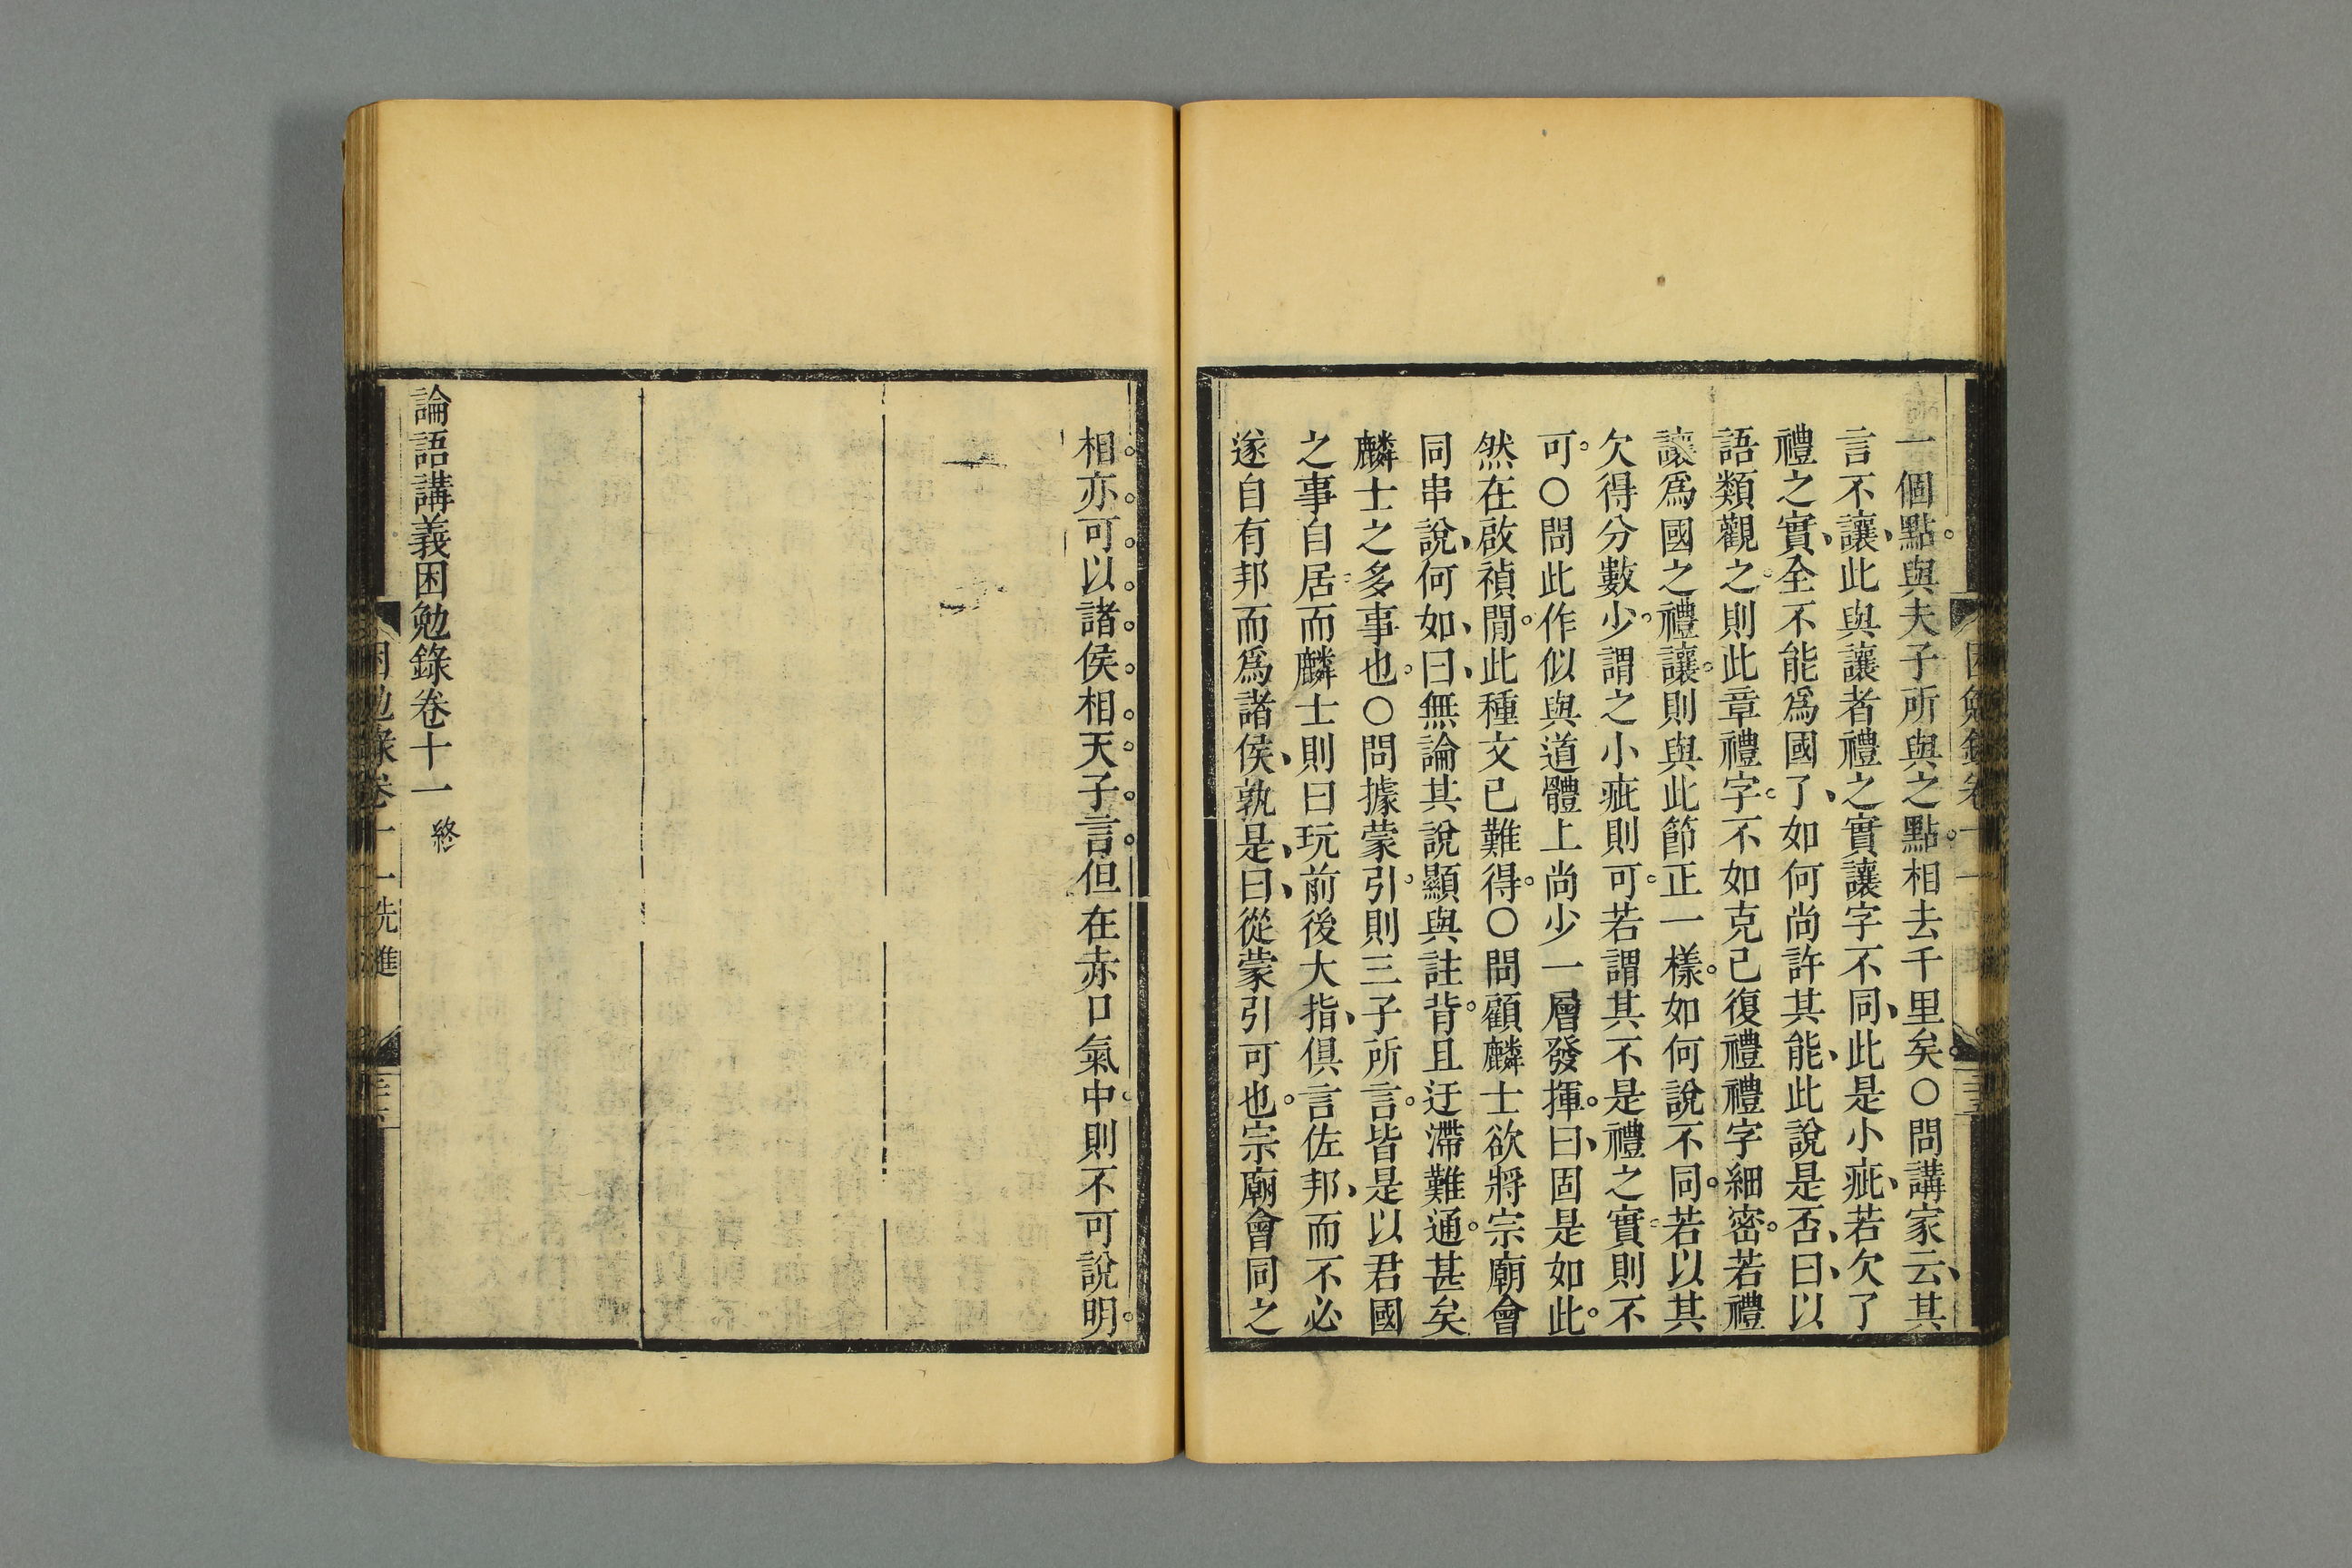 一個點。與夫子所與之點。相去千里矣。○問講家云、其
言不讓、此與讓者禮之實讓字不同、此是小疵、若欠了
禮之實、全不能爲國了、如何尚許其能、此說是否、曰、以
語類觀之。則此章禮字。不如克己復禮禮字細密。若禮
讓爲國之禮讓。則與此節正一樣。如何說不同。若以其
欠得分數少。謂之小疵則可。若謂其不是禮之實。則不
可。○問此作似與道體上尚少一層發揮。曰、固是如此。
然在啟禎閒。此種文已難得。○問顧麟士欲將宗廟會
同串說、何如、曰、無論其說顯與註背。且迂滯難通。甚矣
麟士之多事也。○問據蒙引。則三子所言。皆是以君國
之事自居。而麟士則曰玩前後大指、俱言佐邦、而不必
遂自有邦而爲諸侯、孰是、曰、從蒙引可也。宗廟會同之
相。亦。可。以。諸。侯。相。天。子。言。但在赤口氣中。則不可說明。
論語講義困勉錄卷十一 終